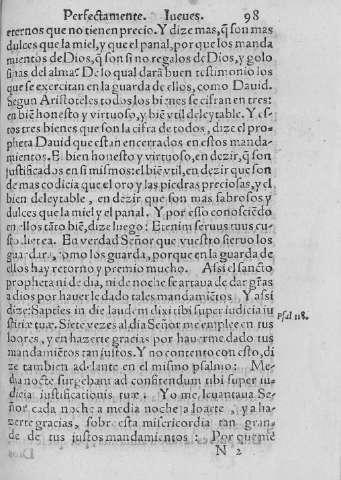 Perfectamente. Iueues. 98
eternos que no tienen precio. Y dize mas, q̃ son mas
dulces que la miel, y que el panal, por que los manda
mientos de Dios, q̃ son sino regalos de Dios, y golo
sinas del alma? De lo qual dara buen testimonio los
que se exercitan en la guarda de ellos, como Dauid.
Segun Aristoteles todos los bienes se cifran en tres:
en biẽ honesto y virtuoso, y biẽ vtil deleytable. Y es
tos tres bienes que son la cifra de todos, dize el pro=
pheta Dauid que estan encerrados en estos manda=
mientos. El bien honesto y virtuoso, en dezir, q̃ son
justificados en si mismos: el biẽ vtil, en dezir que son
de mas codicia que el oro y las piedras preciosas, y el
bien deleytable, en dezir que son mas sabrosos y
dulces que la miel y el panal. Y por esso conosciẽdo
en ellos tãto biẽ, dize luego: Etenim seruus tuus cu=
stodit ea. En verdad Señor que vuestro sieruo los
guardara, como los guarda, porque en la guarda de
ellos hay retorno y premio mucho. Assi el sancto
propheta ni de dia, ni de noche se artaua de dar grãs
a dios por hauerle dado tales mandamiẽtos. Y assi
dize: Septies in die laudem dixi tibi super iudicia iu
stitiæ tuæ. Siete vezes al dia Señor me emplee en tus
loores, y en hazerte gracias por hauerme dado tus
mandamiẽtos tan justos. Y no contento con esto, di
ze tambien adelante en el mismo psalmo: Me=
dia nocte surgebam ad confitendum tibi super iu=
dicia iustificationis tuæ. Yo me leuantaua Se=
ñor cada noche a media noche a loarte, y a ha=
zerte gracias, sobre esta misericordia tan gran=
de de tus justos mandamientos: Por que me
Psal 118.
N 2